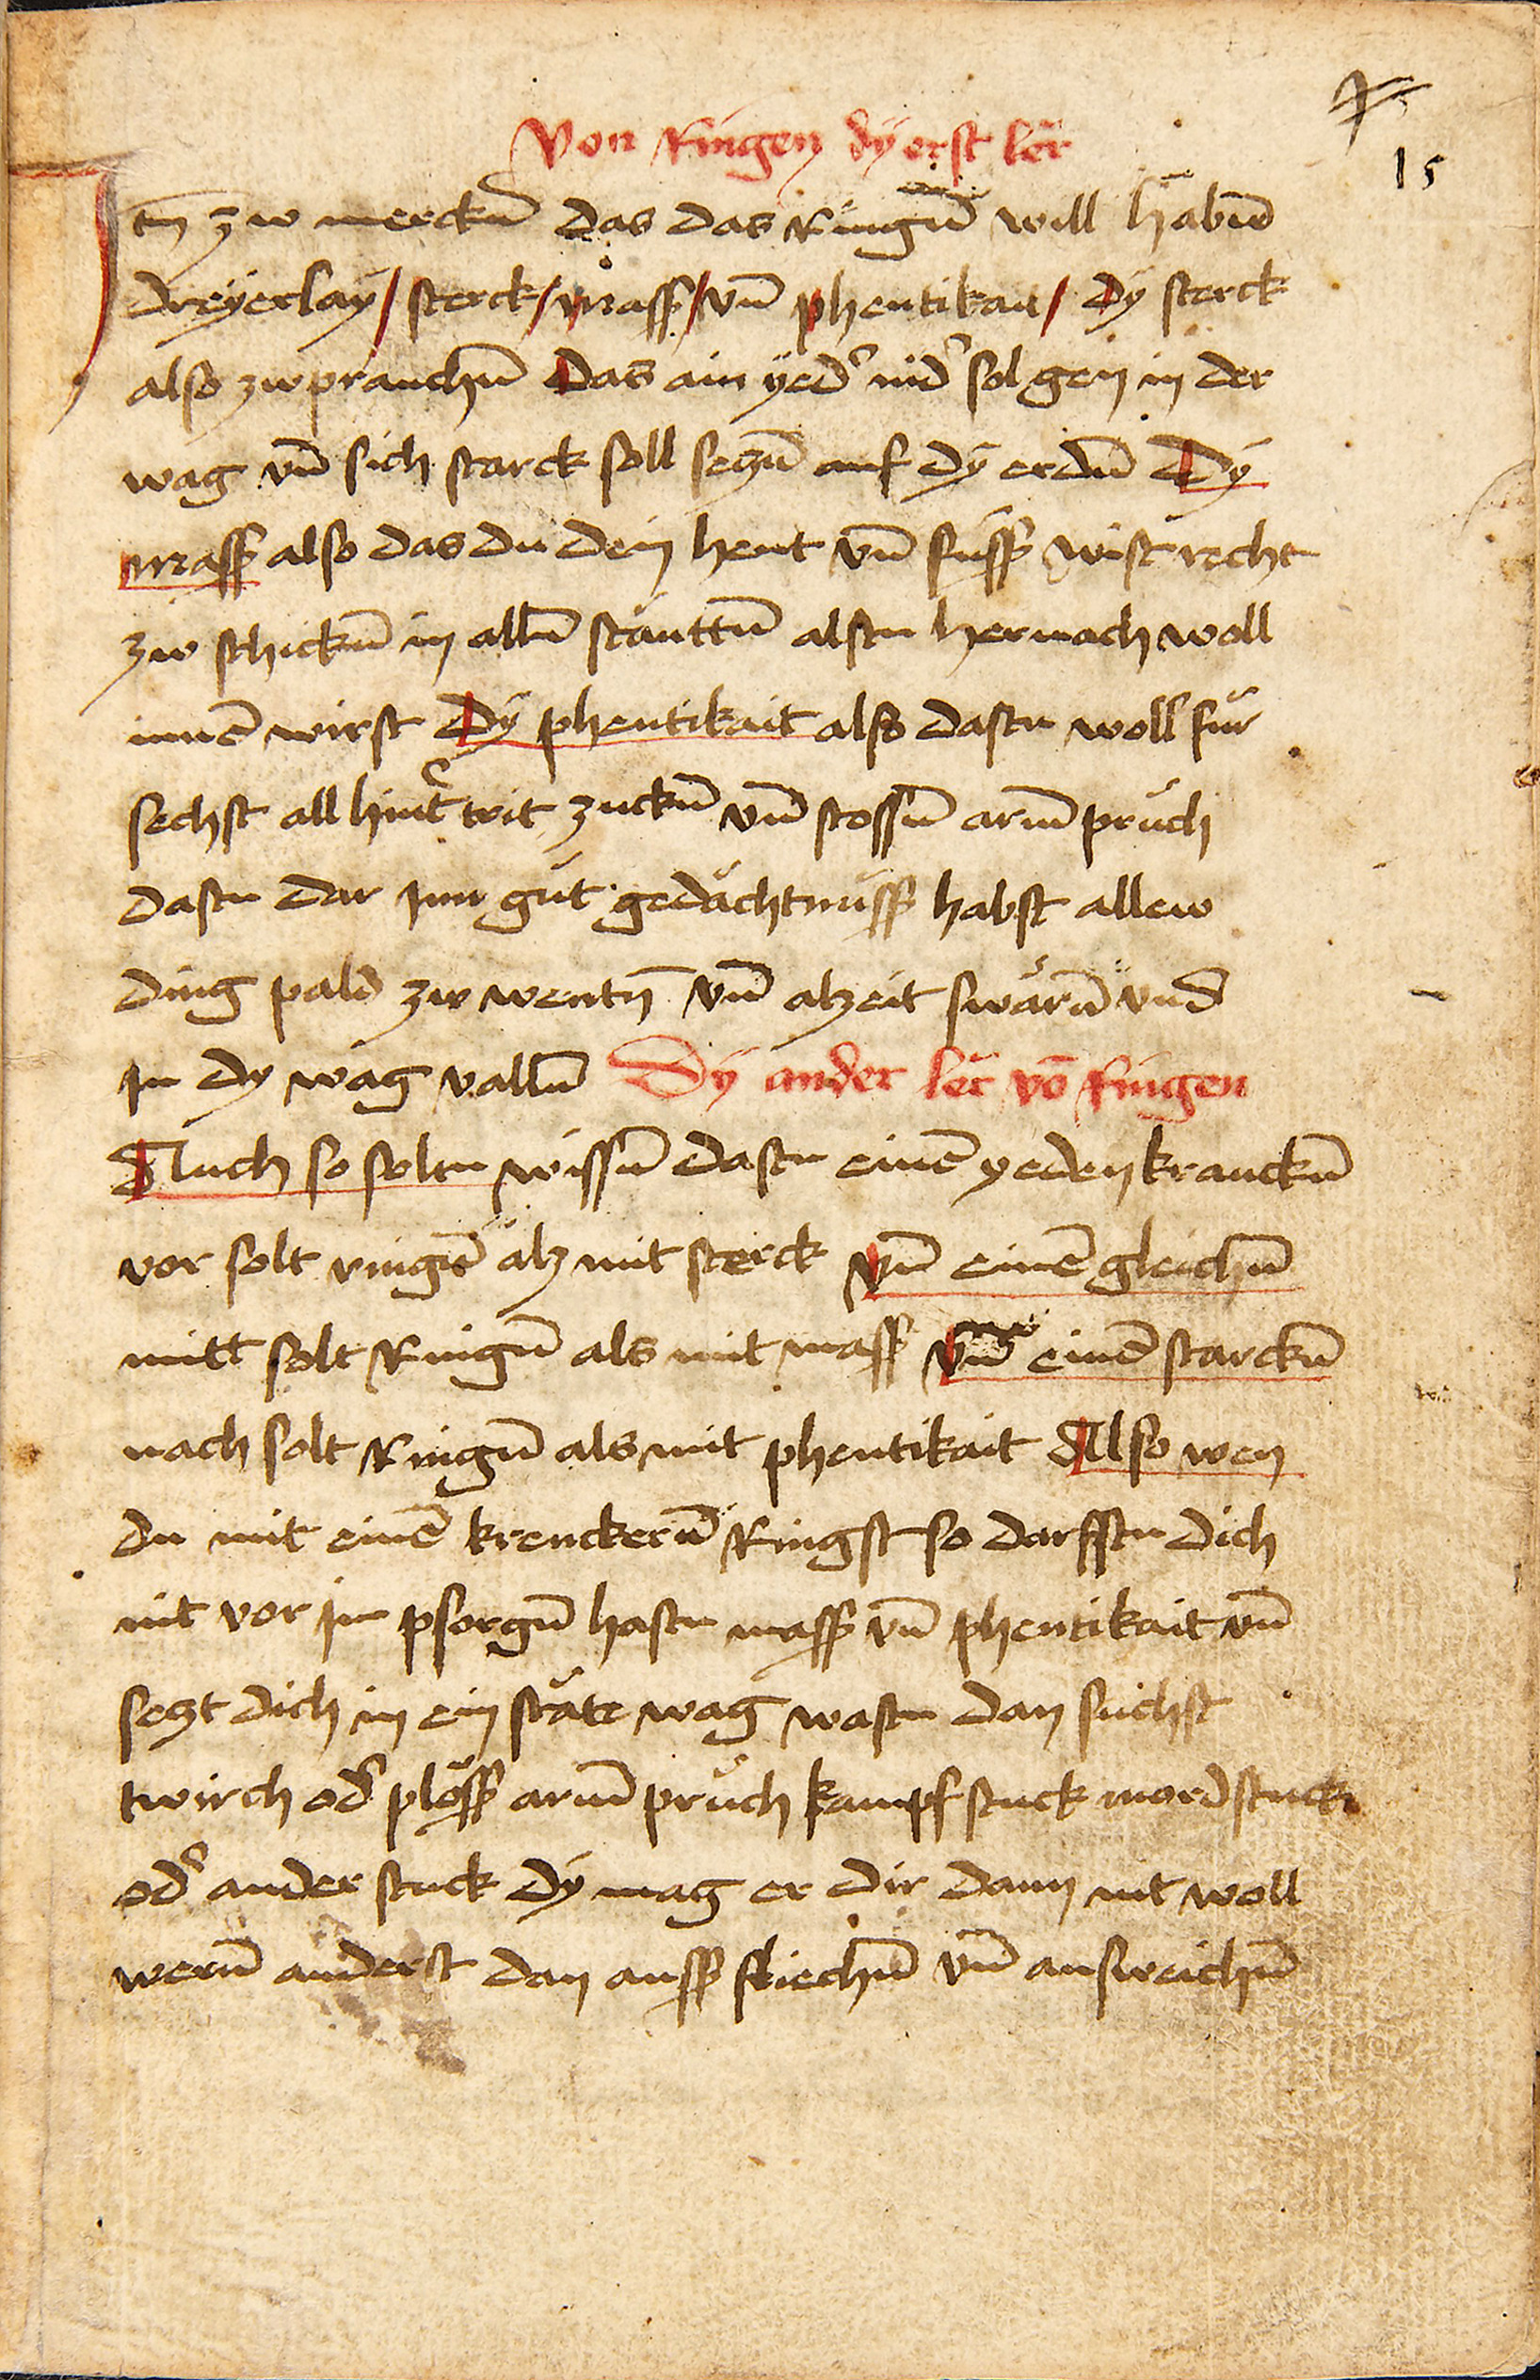 Von Ringen dÿ erst ler
15
Jtn̄ zw merckn̄ das das Ringn̄ will habn̄
dreÿerlaÿ / sterck / mass / vn̄ phentikait / Dÿ sterck
also zw prauchn̄ Das ain ÿeder nider sol gen in der
wag vn̄ sich starck soll seczn̄ auf dÿ erdn̄ Dÿ
mass also das du dein hent vn̄ fuss wist recht
zw schickn̄ in alln̄ stänttn̄ alstu hernach woll
innē wirst Dÿ phentikait also dastu woll für
sechst all hinter trit zuckn̄ vn̄ stossn̄ arm̄ prüch
dastu dar Inn güt gedächtnüss habst allew
ding pald zw wentn̄ vn̄ alzeit swärn̄ vnd
in dy wag valln̄ Dÿ ander ler vō ringen
Auch so soltu wissn̄ dastu einē yeden kranckn̄
vor solt ringē alz mit sterck vn̄ einē gleichn̄
mitt solt Ringn̄ als mit mass vn̄ einē starckn̄
nach solt Ringn̄ als mit phentikait Also wen
du mit einē krenckern̄ Ringst so darfstu dich
nit vor im psorgn̄ hastu mass vn̄ phentikait vn̄
seczt dich in ein stäte wag wastu dan suchst
twirch oder plöss arm̄ prüch kampfstuck mordstuck
oder ander stuck dÿ mag er dir dann nit woll
wern̄ anderst dan auss fliechn̄ vn̄ ausweichn̄